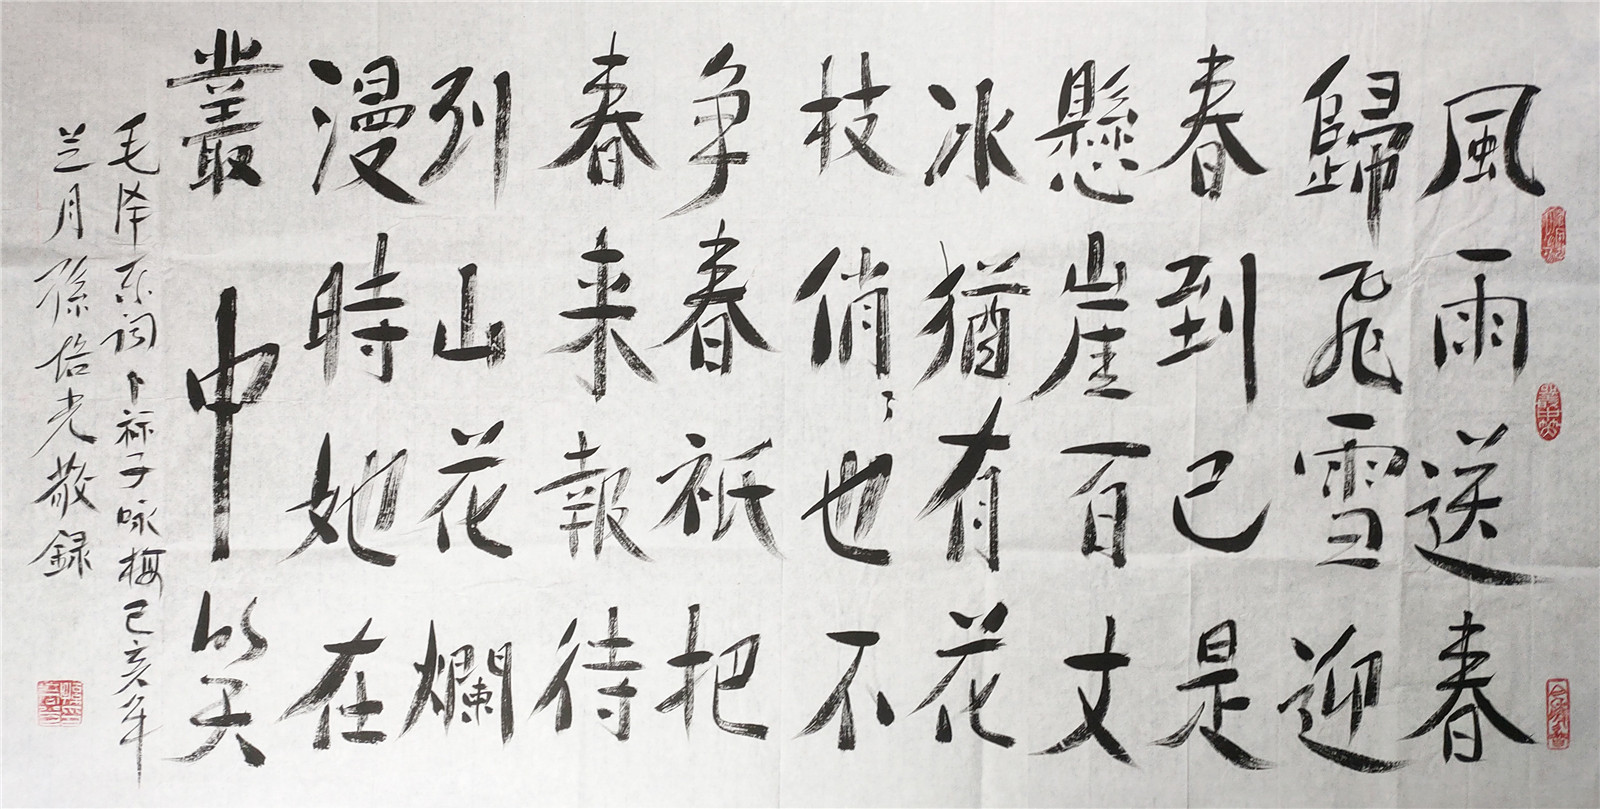 風雨送春
歸飛雪迎
春到已是
懸崖百丈
冰猶有花
枝俏〻也不
争春衹把
春来報待
列山花爛
漫時她在
叢中笑
毛泽东词卜祘子咏梅己亥年
兰月孫培光敬録